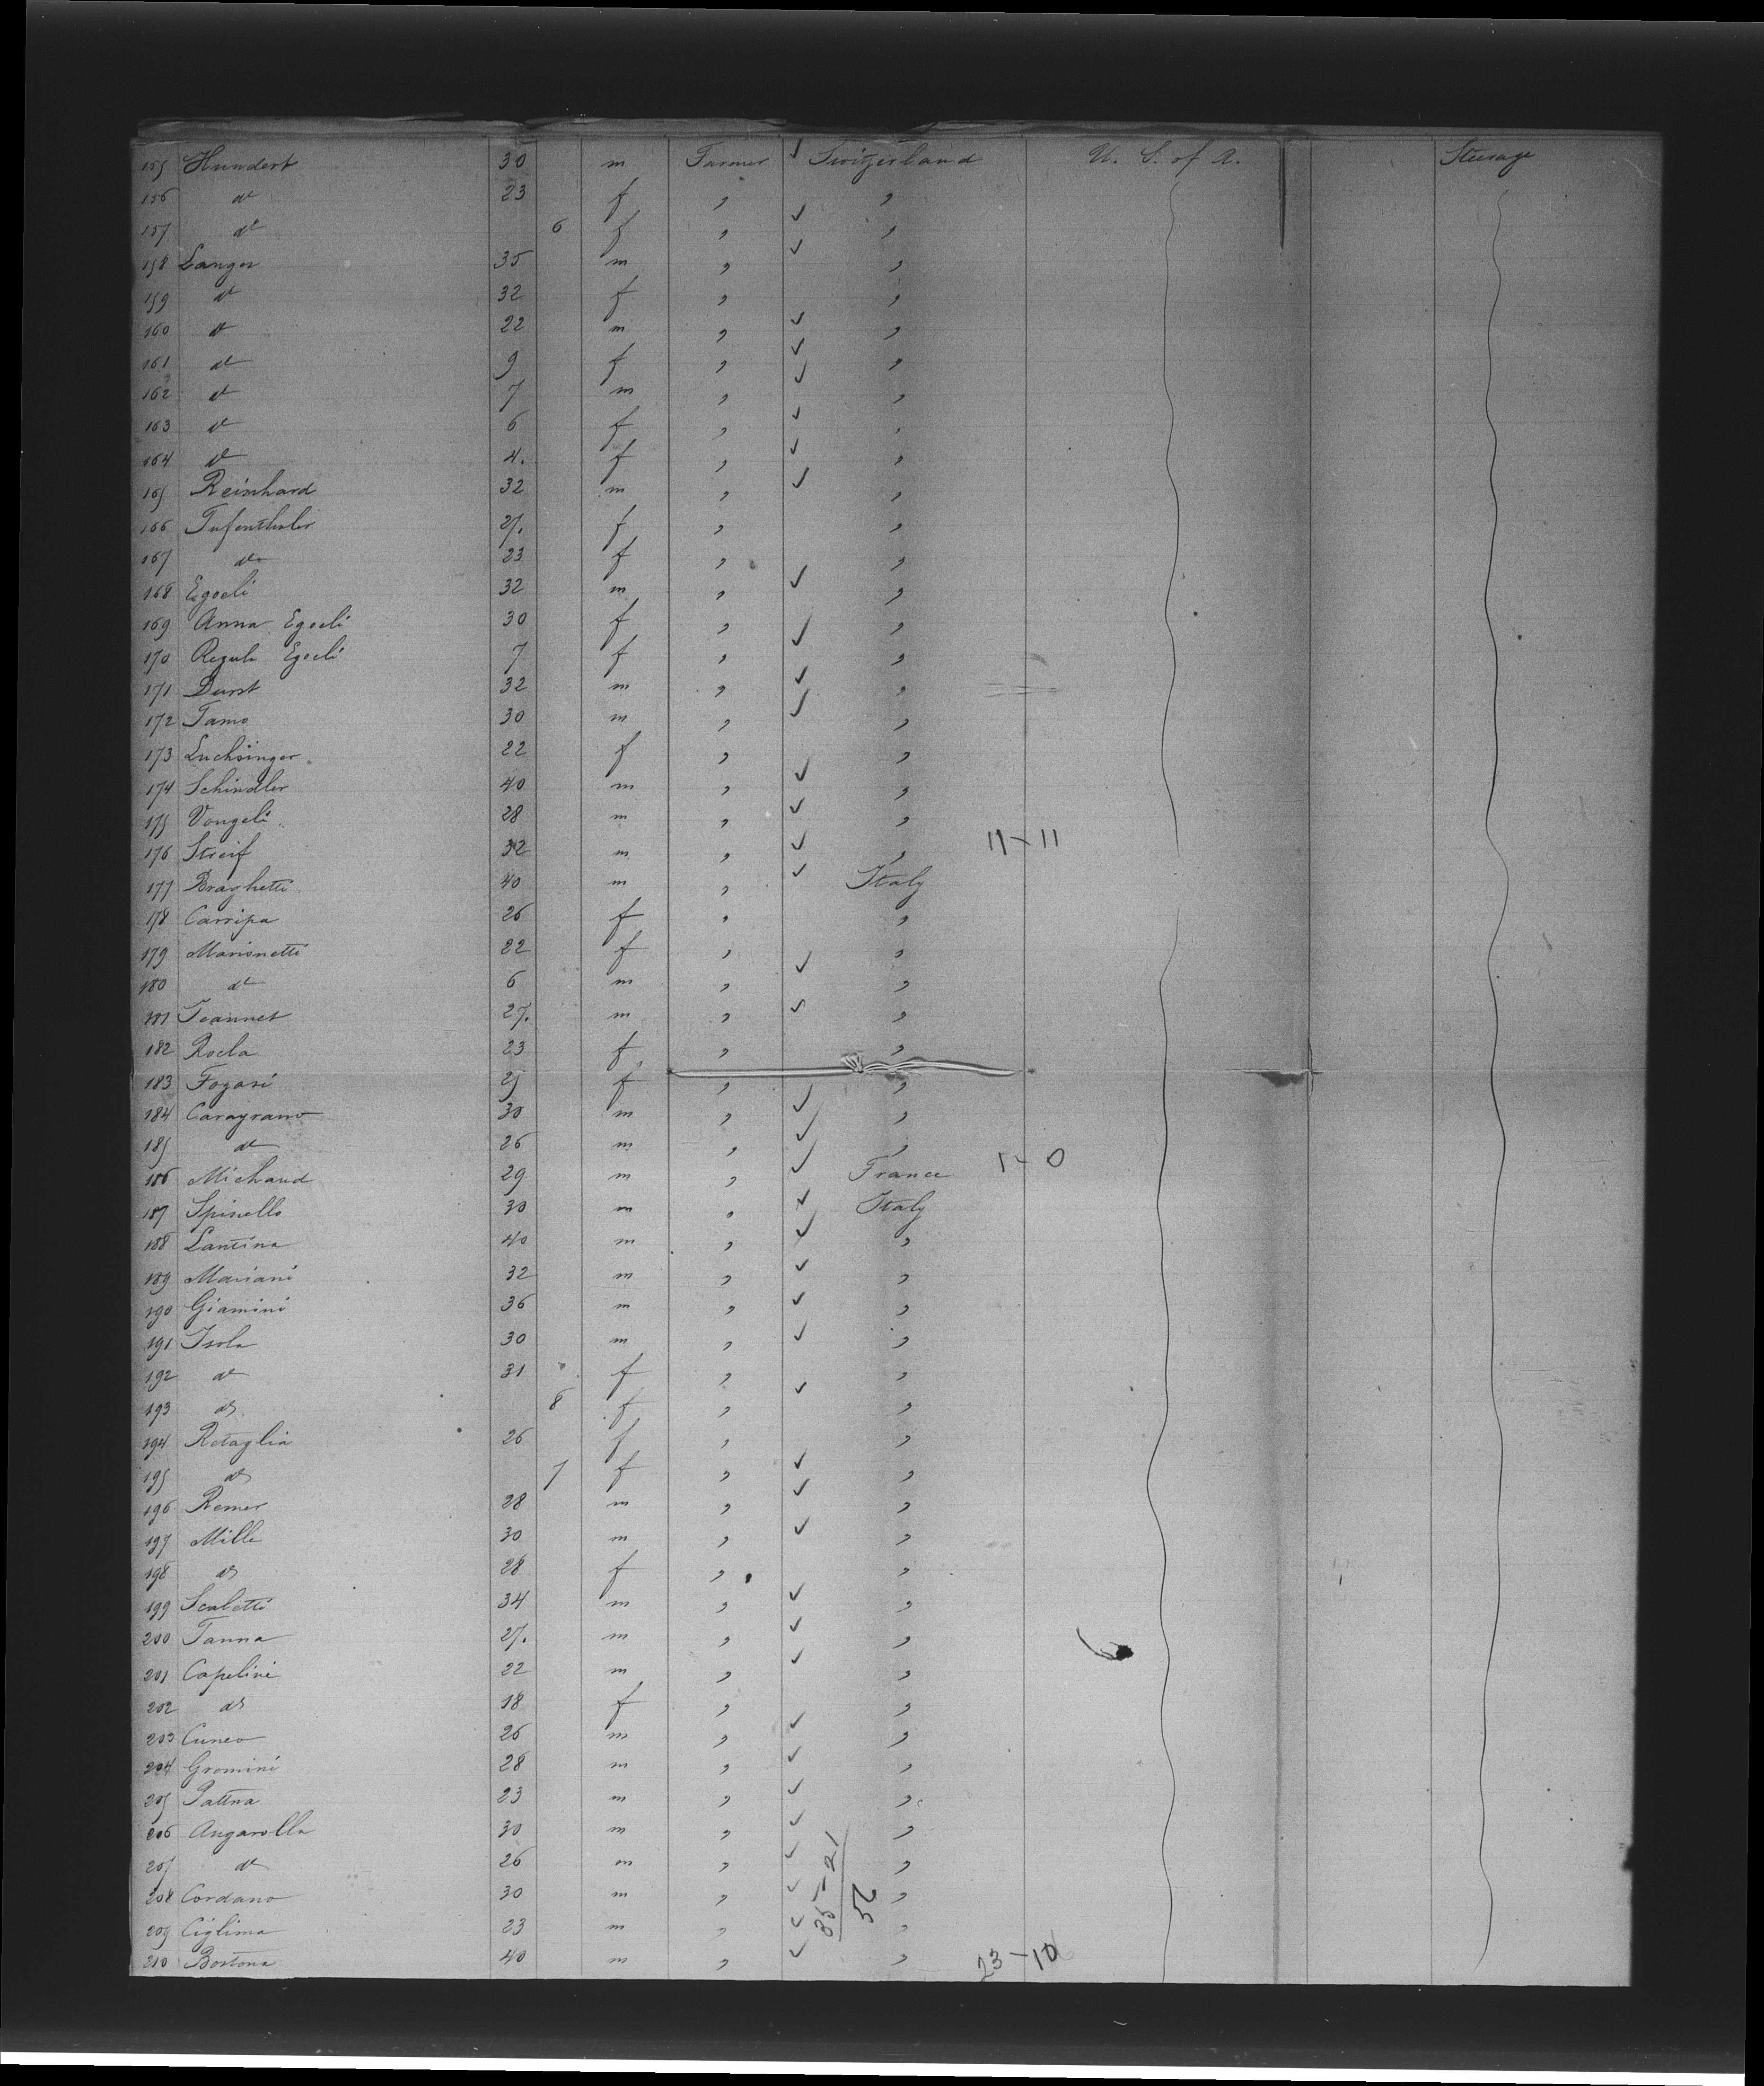 155 Hundert 30 m Farmer ✓ Switzerland U. S. of A. Steerage
156 do 23 f " "
157 do 6 f " ✓ "
158 Langer 35 m " ✓ "
159 do 32 f " "
160 do 22 m " ✓ "
161 do 9 f " ✓ "
162 do 7 m " ✓ "
163 do 6 f " ✓ "
164 do 4. f " ✓ "
165 Reinhard 32 m " ✓ "
166 Tufenthaler 27. f " "
167 do 23 f " "
168 Egoeli 32 m " ✓ "
169 Anna Egoeli 30 f " ✓ "
170 Regula Egoeli 7 f " "
171 Durst 32 m " ✓ "
172 Tamo 30 m " ✓ "
173 Luchsinger 22 f " "
174 Schindler 40 m " ✓ "
175 Vongeli 28 m " ✓ "
176 Streif 32 m " ✓ " 11-11
177 Braghetti 40 m " ✓ Italy
178 Carripa 26 f " "
179 Marionetti 22 f " "
180 do 6 m " ✓ "
181 Jeannet 27. m " ✓ "
182 Rocla 23 f " "
183 Fogasi 25 f " "
184 Caragrano 30 m " ✓ "
185 do 26 m " ✓ "
186 Michaud 29 m " ✓ France 1-0
187 Spinello 30 m " ✓ Italy
188 Lantina 40 m " ✓ "
189 Mariani 32 m " ✓ "
190 Giamini 36 m " ✓ "
191 Isola 30 m " ✓ "
192 do 31 f " "
193 do 8 f " ✓ "
194 Retaglia 26 f " "
195 do 7 f " ✓ "
196 Remer 28 m " ✓ "
197 Mille 30 m " ✓ "
198 do 28 f " "
199 Scaletti 34 m " ✓ "
200 Tanna 27. m " ✓ "
201 Capelini 22 m " ✓ "
202 do 18 f " "
203 Cuneo 26 m " ✓ "
204 Gromini 28 m " ✓ "
205 Pattna 23 m " ✓ "
206 Angarolla 30 m " ✓ "
207 do 26 m " ✓ "
208 Cordano 30 m " ✓ "
209 Ciglima 23 m " ✓ "
210 Bostona 40 m " ✓ "
35-21
56
23-10